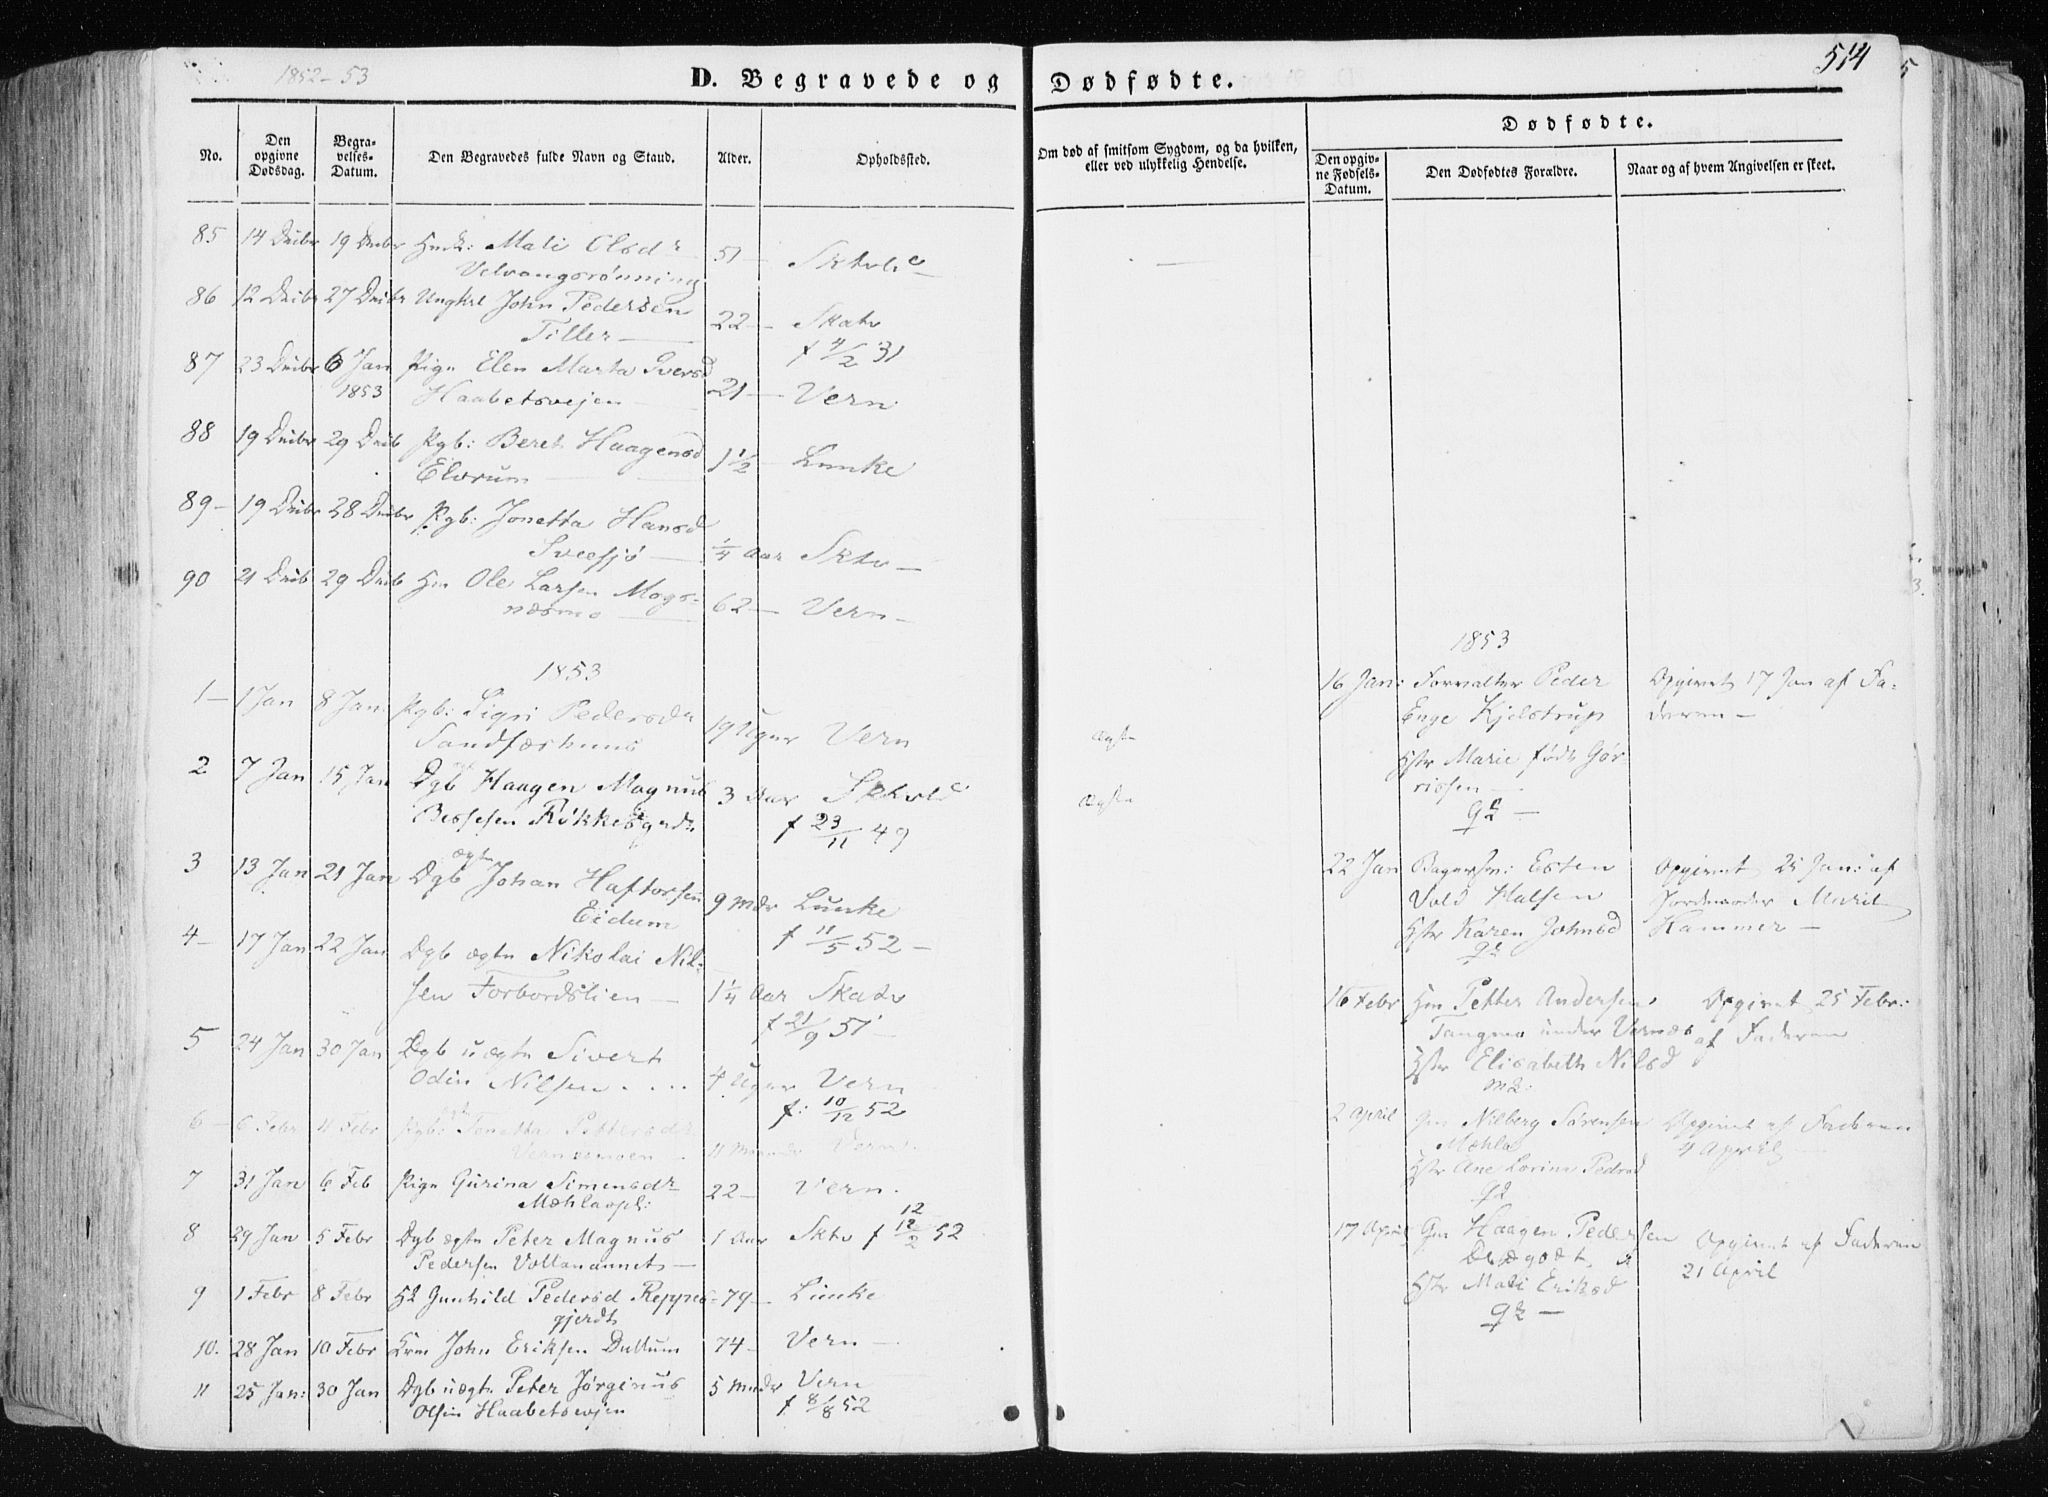 1852-53
D. Begravede og Dødfødte.
514
No.
Den opgivne Dødsdag.
Begravelses-Datum.
Den Begravedes fulde Navn og Stand.
Alder.
Opholdssted.
Om død af smitsom Sygdom, og da hvilken, eller ved ulykkelig Hendelse.
Dødfødte.
Den opgivne Fødsels-Datum.
Den Dødfødtes Forældre.
Naar og af hvem Angivelsen er skeet.
85 14 Decbr 19 Decbr Mali Olsdr 51 —
Velvangsrønning
86 12 Decbr 27 Decbr Ungkrl John Pedersen 22 — Skatv
Tiller — f 4/2 31
87 23 Decbr 6 Jan Pige Elen Marta Iversd 21 — Vern
1853 Haabetsvejen
88 19 Decbr 29 Decb Pgb: Beret Haagensd 1 1/2 — Lunke
Elvrum —
89 — 19 Decbr 28 Decbr Pgb: Jonetta Hansd
1/4 Aar Sktv —
90 21 Decb 29 Decb Hm Ole Larsen Mogs-
næsmo — 62 — Vern —
1853
1 — 1 Jan 8 Jan Pgb: Sigri Pedersdr 19 Uger Vern
Sandfærhuus
2 7 Jan 15 Jan Dgb Haagen Magnus 3 Aar
Bessesen f 23/11 49
3 13 Jan 21 Jan Dgb ægte Johan Haftorsen 9 Mdr Lunke
Eidum f 11/5 52 —
4 — 17 Jan 22 Jan Dgb ægte Nikolai Nil-
sen Forbordslien — 1 1/4 Aar Skatv
f 21/9 51
5 24 Jan 30 Jan Dgb uægte Sivert
Odin Nilsen 4 Uger Vern
f: 10/12 52
6 — 6 Febr 11 Febr Pgb: Jonetta Pettersdr
Vernesmoen 11 Vern
7 31 Jan 6 Feb Pige Gurina Simensdr 22 — Vern
Mæhlaspl:
8 29 Jan 5 Febr Dgb ægte Peter Magnus 1 Aar Sktv f 12/2 52
12
Pedersen Vollanannet —
9 1 Febr 8 Febr Gunhild Pedersd Reppes- 79 — Lunke
gjerdt
10. 28 Jan 10 Febr John Eriksen Dullum 74 — Vern —
11 25 Jan: 30 Jan Dgb uægte Peter Jørginus 5 Mdr Vern
Olsen Haabetsvejen f 8/8 52
ægte
ægte
1853
16 Jan: Forvalter Peder
Enge Kjelstrup
Hstr Marie født Gør-
rissen —
Opgivet 17 Jan af Fa-
deren —
22 Jan Esten
Vold Halsen
Hstr Karen Johnsd
Opgivet 25 Jan: af
Jordmoder Marit
Hammer —
16 Febr Hm Petter Andersen
Tangmo under Vernæs
Hstr Elisabeth Nilsd
Opgivet 25 Febr:
af Faderen
2 April Gm Nilberg Sørensen
Mæhla
Hstr Ane Lorine Pedersd
Opgivet af Faderen
4 April —
17 April Gm Haagen Pedersen
Hstr Mali Eriksd
Opgivet af Faderen
21 April